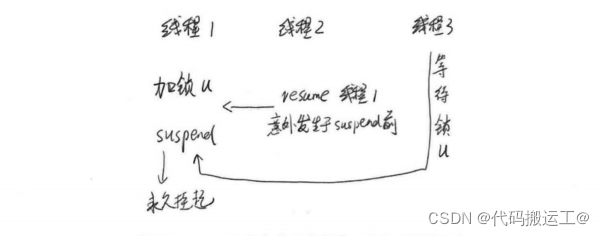 线程1 线程2 线程3
加锁u
resume 线程1
意外发生于suspend前
suspend
永久挂起
等待锁u
CSDN @代码搬运工@